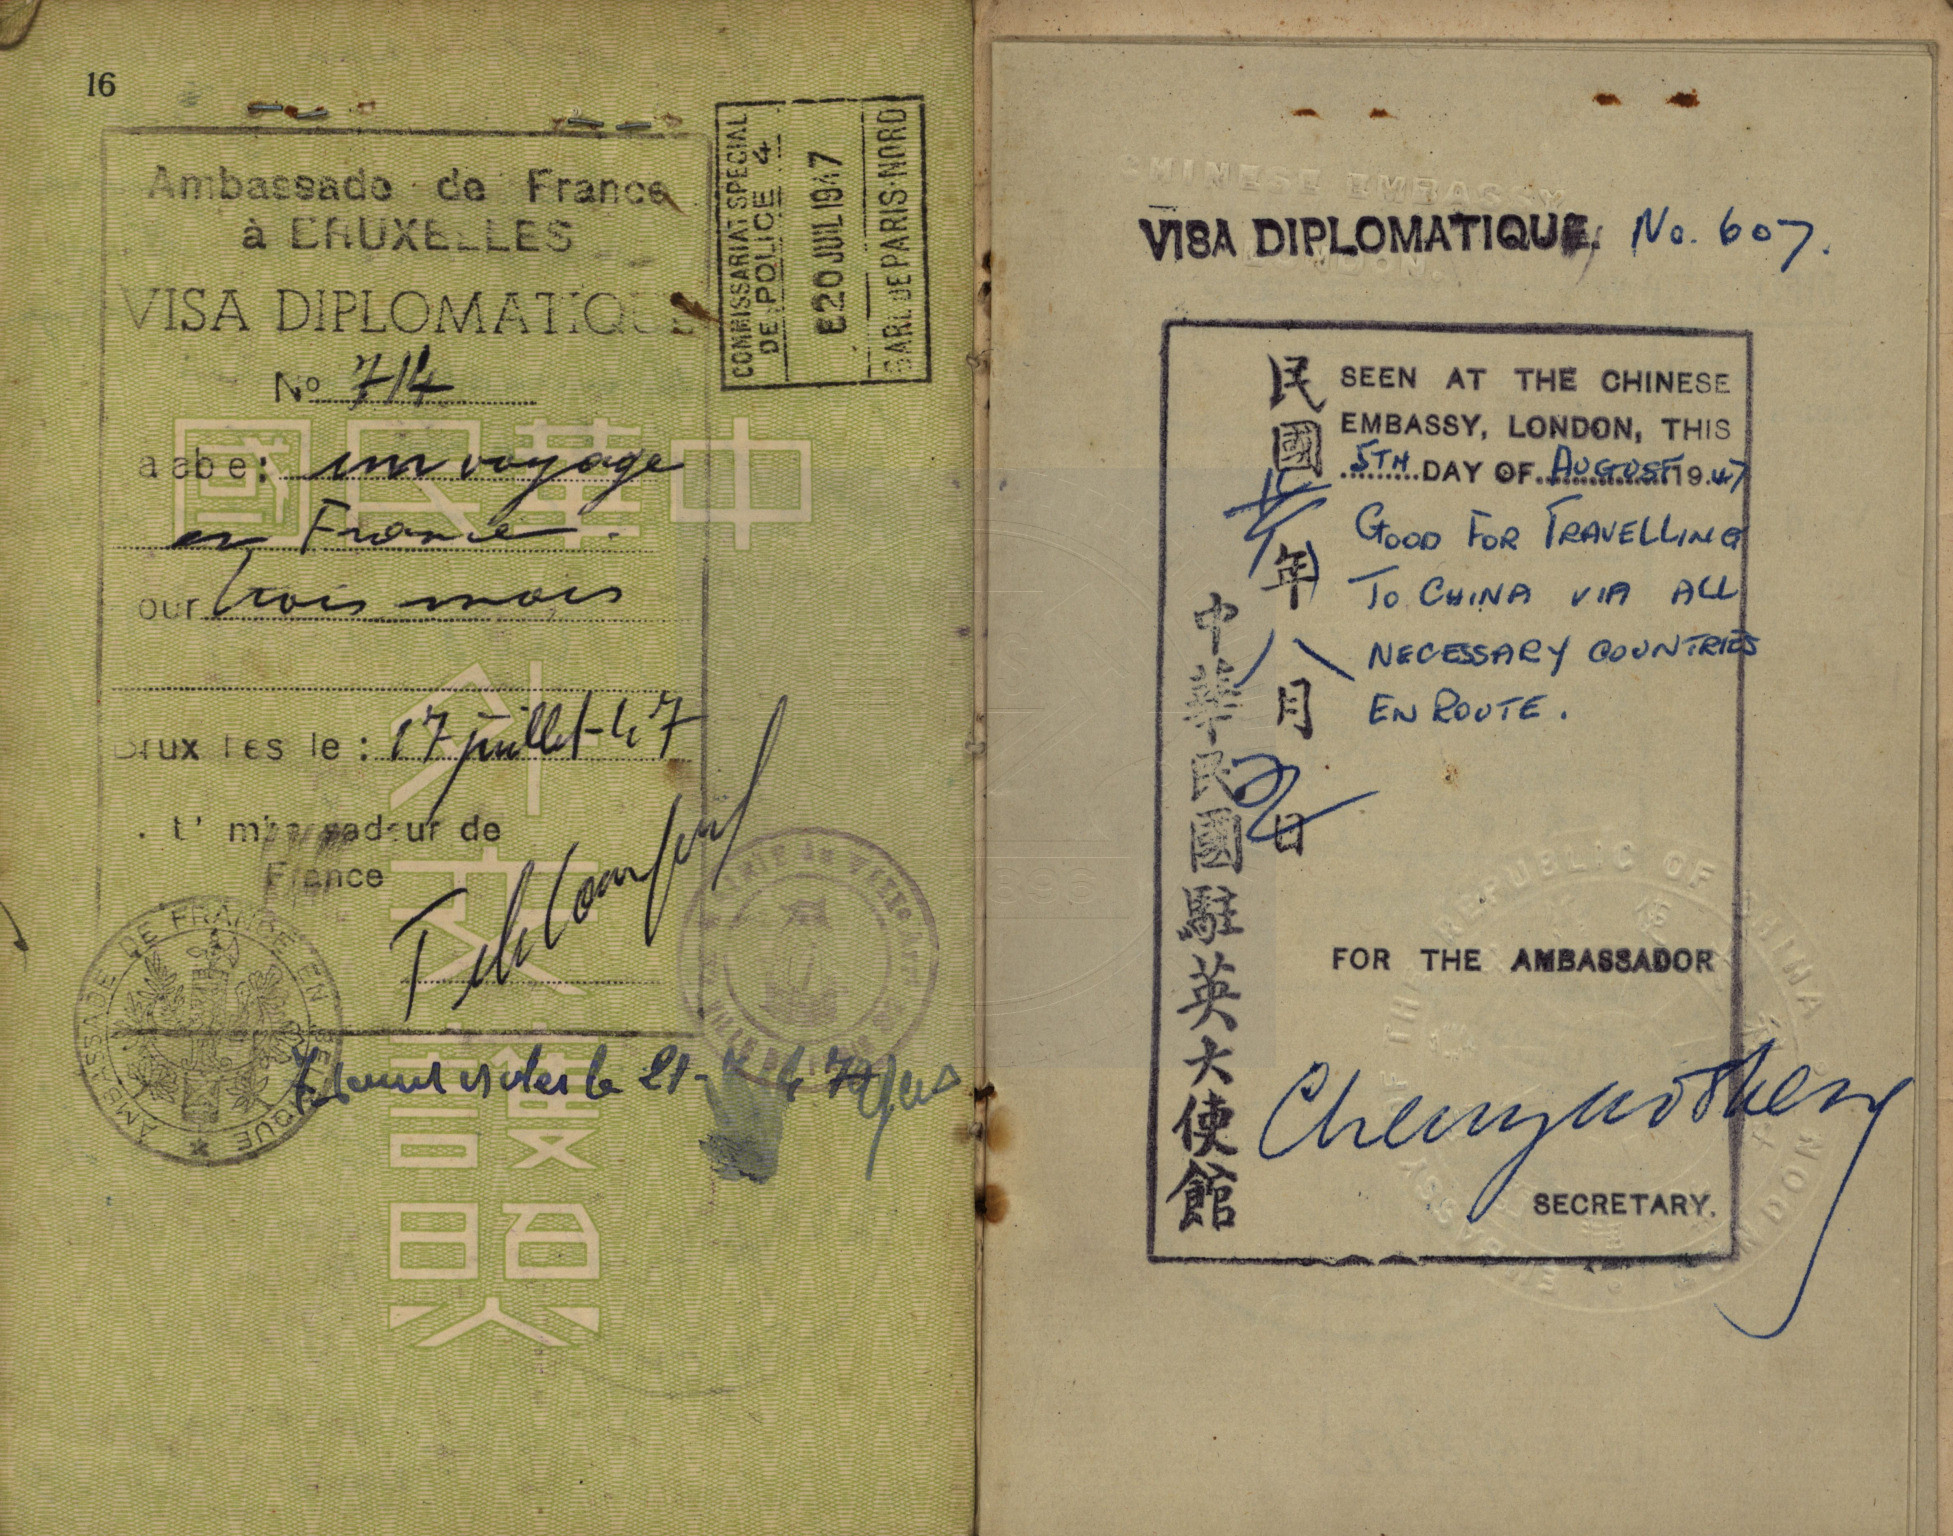 16
Ambassade de France
à BRUXELLES
VISA DIPLOMATIQUE
No 714
a ab e: un voyage
en France.
our trois mois
Brux l es le : 17 juillet 47
. t' m a sadeur de
France
AMBASSADE DE FRANCE EN BELGIQUE
le 21-7-47
COMMISSARIAT SPECIAL
DE POLICE 4
E20 JUIL 1947
GARE DE PARIS-NORD
中華民國
外交
護照
CHINESE EMBASSY
LONDON.
VISA DIPLOMATIQUE, No. 607.
SEEN AT THE CHINESE
EMBASSY, LONDON, THIS
5TH DAY OF AUGUST 1947
GOOD FOR TRAVELLING
TO CHINA VIA ALL
NECESSARY COUNTRIES
EN ROUTE.
民國卅六年八月五日
中華民國駐英大使館
FOR THE AMBASSADOR
SECRETARY.
EMBASSY OF THE REPUBLIC OF CHINA · LONDON ·